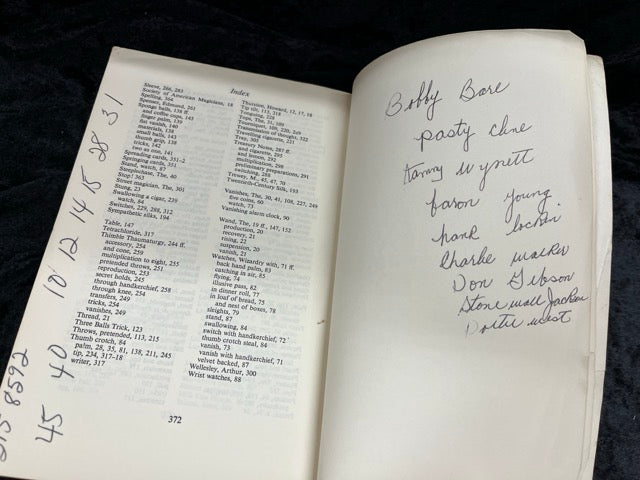 Index
Shave, 266, 283
Society of American Magicians, 18
Spelling, 364
Spenser, Edmund, 261
Sponge balls, 138 ff
and coffee cups, 143
finger palm, 139
flat vanish, 140
materials, 138
small balls, 143
thumb grip, 138
tricks, 142
two as one, 141
Spreading cards, 351-2
Springing cards, 351
Stand, watch, 87
Steeplechase, The, 40
Stop! 363
Street magician, The, 301
Stung, 21
Swallowing a cigar, 239
watch, 84
Switches, 229, 288, 312
Sympathetic silks, 194
Table, 147
Tetrachloride, 317
Thimble Thaumaturgy, 244 ff.
accessory, 254
and cone, 259
multiplication to eight, 255
pretended throws, 251
reproduction, 253
secret holds, 245
through handkerchief, 258
through knee, 254
transfers, 249
tricks, 254
vanishes, 249
Thread, 21
Three Balls Trick, 123
Throws, pretended, 113, 215
Thumb crotch, 84
palm, 28, 35, 81, 138, 211, 245
tip, 234, 317-18
writer, 317
Thurston, Howard, 12, 17, 18
Tip tilt, 113, 218
Tonguing, 228
Tops, The, 31, 109
Tourniquet, 109, 220, 249
Transmission of thought, 322
Travelling cigarette, 221
Tray, 305
Treasury Notes, 287 ff.
and cigarette, 295
and lemon, 292
multiplication, 298
preliminary preparations, 291
switching, 288
Trewey, M., 45, 67, 70
Twentieth-Century Silks, 193
Vanishes, The, 30, 41, 108, 227, 249
five coins, 60
watch, 73
Vanishing alarm clock, 90
Wand, The, 19 ff., 147, 152
production, 20
recovery, 21
rising, 22
suspension, 20
vanish, 21
Watches, Wizardry with, 71 ff.
back hand palm, 83
catching in air, 85
flying, 74
illusive pass, 82
in dinner roll, 77
in loaf of bread, 75
and nest of boxes, 78
sleights, 79
stand, 87
swallowing, 84
switch with handkerchief, 72
thumb crotch steal, 84
vanish, 73
vanish with handkerchief, 71
velvet backed, 87
Wellesley, Arthur, 300
Wrist watches, 88
372
8592
45 40 10 12 14 15 28 31
Bobby Bare
pasty cline
tammy wynett
faron young
hank locklin
Charlie walker
Don Gibson
Stone wall Jackson
Dottie west